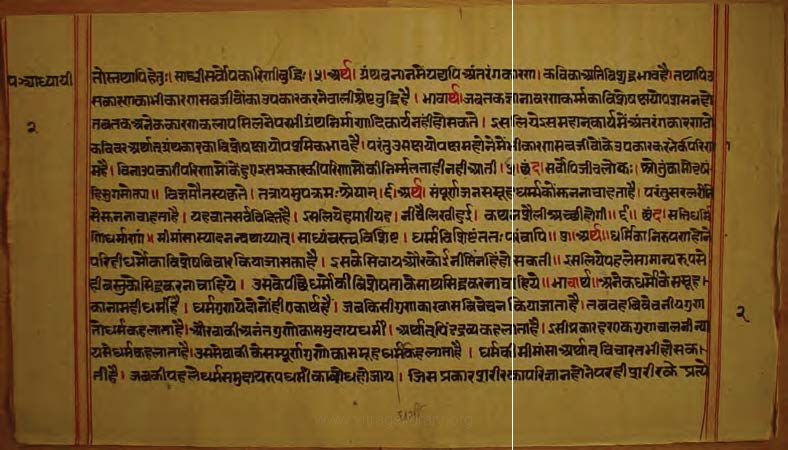 पञ्चाध्यायी
२
तोस्तथापि हेतुः। साध्वी सर्वोपकारिणी बुद्धिः।५। अर्थ। ग्रंथ बनाने में यद्यपि अंतरंग कारण। कवि का अति विशुद्ध भाव है। तथापि उ
स कारण का भी कारण सब जीवों का उपकार करने वाली श्रेष्ठ बुद्धि है। भावार्थ। जब तक ज्ञानावरण कर्म्म का विशेष क्षयोपशम न हो
तब तक अनेक कारण कलाप मिलने पर भी ग्रंथ निर्माणादि कार्य नहीं हो सकते। इसलिये इस महान् कार्य में अंतरंग कारण तो
कविवर अर्थात् ग्रंथकार का विशेष क्षायोपशमिक भाव है। परंतु उस क्षयोपशम होने में भी कारण सब जीवों के उपकार करने के परिणा
म है। विना उपकारी परिणामों के हुए इस प्रकार की परिणामों की निर्म्मलता ही नहीं आती।५। छंद। सर्वोपि जीवलोकः। श्रोतुं कामो वृषं
हि सुगमोक्त्या॥ विज्ञप्तौ तस्य कृते। तत्रायमुपक्रमः श्रेयान्।६। अर्थ। संपूर्ण जनसमूह धर्म को सुनना चाहता है। परंतु सरल रीति
से सुनना चाहता है। यह बात सर्व विदित है। इसलिये हमारी यह। नीचे लिखी हुई। कथन शैली अच्छी होगी॥६॥ छंद। सति धर्मि
णि धर्माणां। मीमांसा स्यादनन्यथा न्यायात्। साध्यं वस्त्वविशिष्टं। धर्म्मविशिष्टं ततः परं चापि॥७॥ अर्थ॥ धर्मि का निरुपण होने
पर ही धर्मों का विशेष विचार किया जा सक्ता है। इसके सिवाय और कोई नीति नहीं हो सकती॥ इसलिये पहले सामान्य रुप से
ही वस्तु को सिद्ध करना चाहिये। उसके पीछे धर्मों की विशेषता के साथ सिद्ध करना चाहिये॥ भावार्थ। अनेक धर्मों के समूह
का नाम ही धर्मी है। धर्म गुण ये दोनों ही एकार्थ है। जब किसी गुण का खास विवेचन किया जाता है। तब वह विवेचनीय गुण
तो धर्म कहलाता है। और बाकी अनंत गुणों का समुदाय धर्मी। अर्थात् पिंड द्रव्य कहलाता है। इसी प्रकार हर एक गुण चालनी न्या
य से धर्म कहलाता है। उससे बाकी के सम्पूर्ण गुणों का समूह धर्मी कहलाता है। धर्म की मीमांसा अर्थात् विचार तभी हो सक
ती है। जब की पहले धर्म समुदाय रुप धर्मी का बोध हो जाय। जिस प्रकार शरीर का परिज्ञान होने पर ही शरीर के प्रत्ये
२